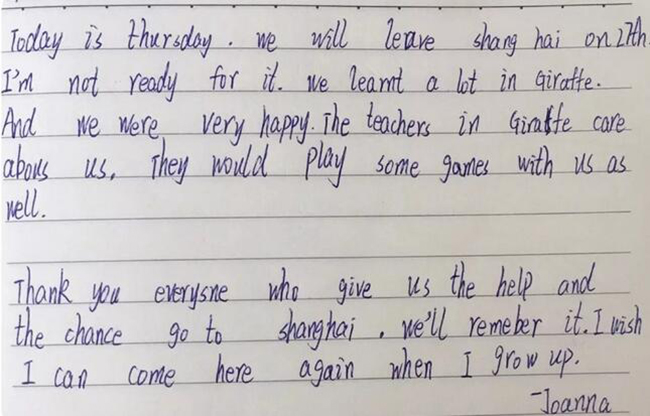 Today is thursday. we will leave shang hai on 27th.
I'm not ready for it. we learnt a lot in Giraffe.
And we were very happy. The teachers in Giraffe care
abous us. They would play some games with us as
well.
Thank you everysne who give us the help and
the chance go to shanghai. we'll remeber it. I wish
I can come here again when I grow up.
-Joanna